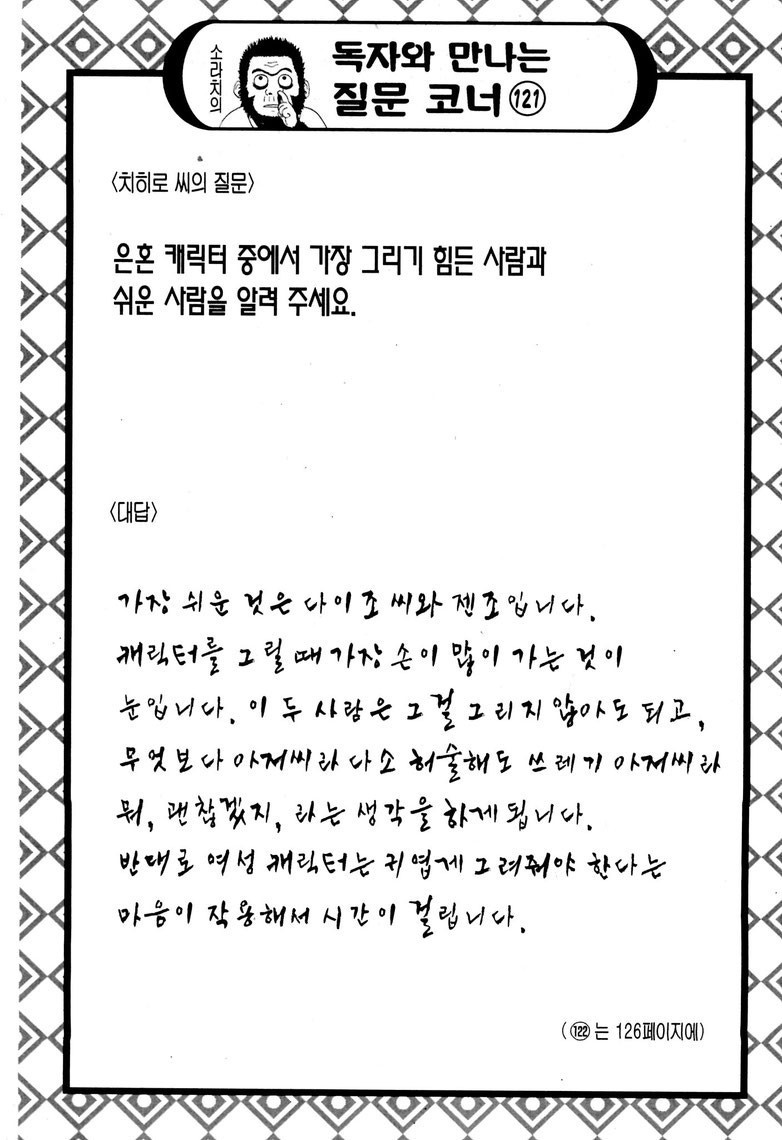 소라치의
독자와 만나는
질문 코너 121
〈치히로 씨의 질문〉
은혼 캐릭터 중에서 가장 그리기 힘든 사람과
쉬운 사람을 알려 주세요.
〈대답〉
가장 쉬운 것은 다이조 씨와 젠조입니다.
캐릭터를 그릴 때 가장 손이 많이 가는 것이
눈입니다. 이 두 사람은 그걸 그리지 않아도 되고,
무엇보다 아저씨라 다소 허술해도 쓰레기 아저씨라
뭐, 괜찮겠지, 라는 생각을 하게 됩니다.
반대로 여성 캐릭터는 귀엽게 그려줘야 한다는
마음이 작용해서 시간이 걸립니다.
(122는 126페이지에)